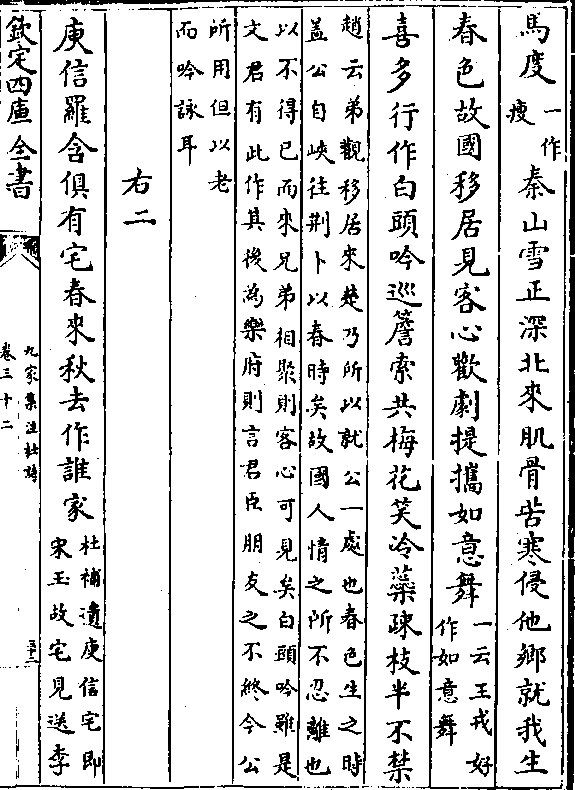 馬度一作瘦秦山雪正深北來肌骨苦寒侵他鄉就我生
春色故國移居見客心歡劇提攜如意舞一云王戎好作如意舞
喜多行作白頭吟巡簷索共梅花笑冷蘂疎枝半不禁
趙云弟觀移居來楚乃所以就公一處也春色生之時
蓋公自峽往荆卜以春時矣故國人情之所不忍離也
以不得已而來兄弟相聚則客心可見矣白頭吟雖是
文君有此作其後為樂府則言君臣朋友之不終今公
所用但以老
而吟詠耳
右二
庾信羅含俱有宅春來秋去作誰家杜補遺庾信宅即宋玉故宅見送李
欽定四庫全書
九家集注杜詩
卷三十二